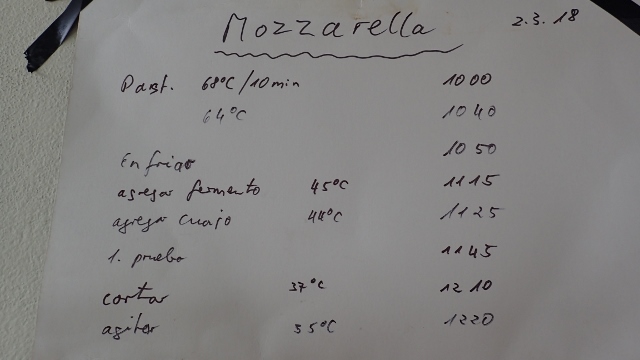 Mozzarella 2.3.18
Past. 68°C/10min 1000
64°C 1040
Enfriar 1050
agregar fermento 45°C 1115
agregar cuajo 44°C 1125
1. prueba 1145
cortar 37°C 1210
agitar 35°C 1220